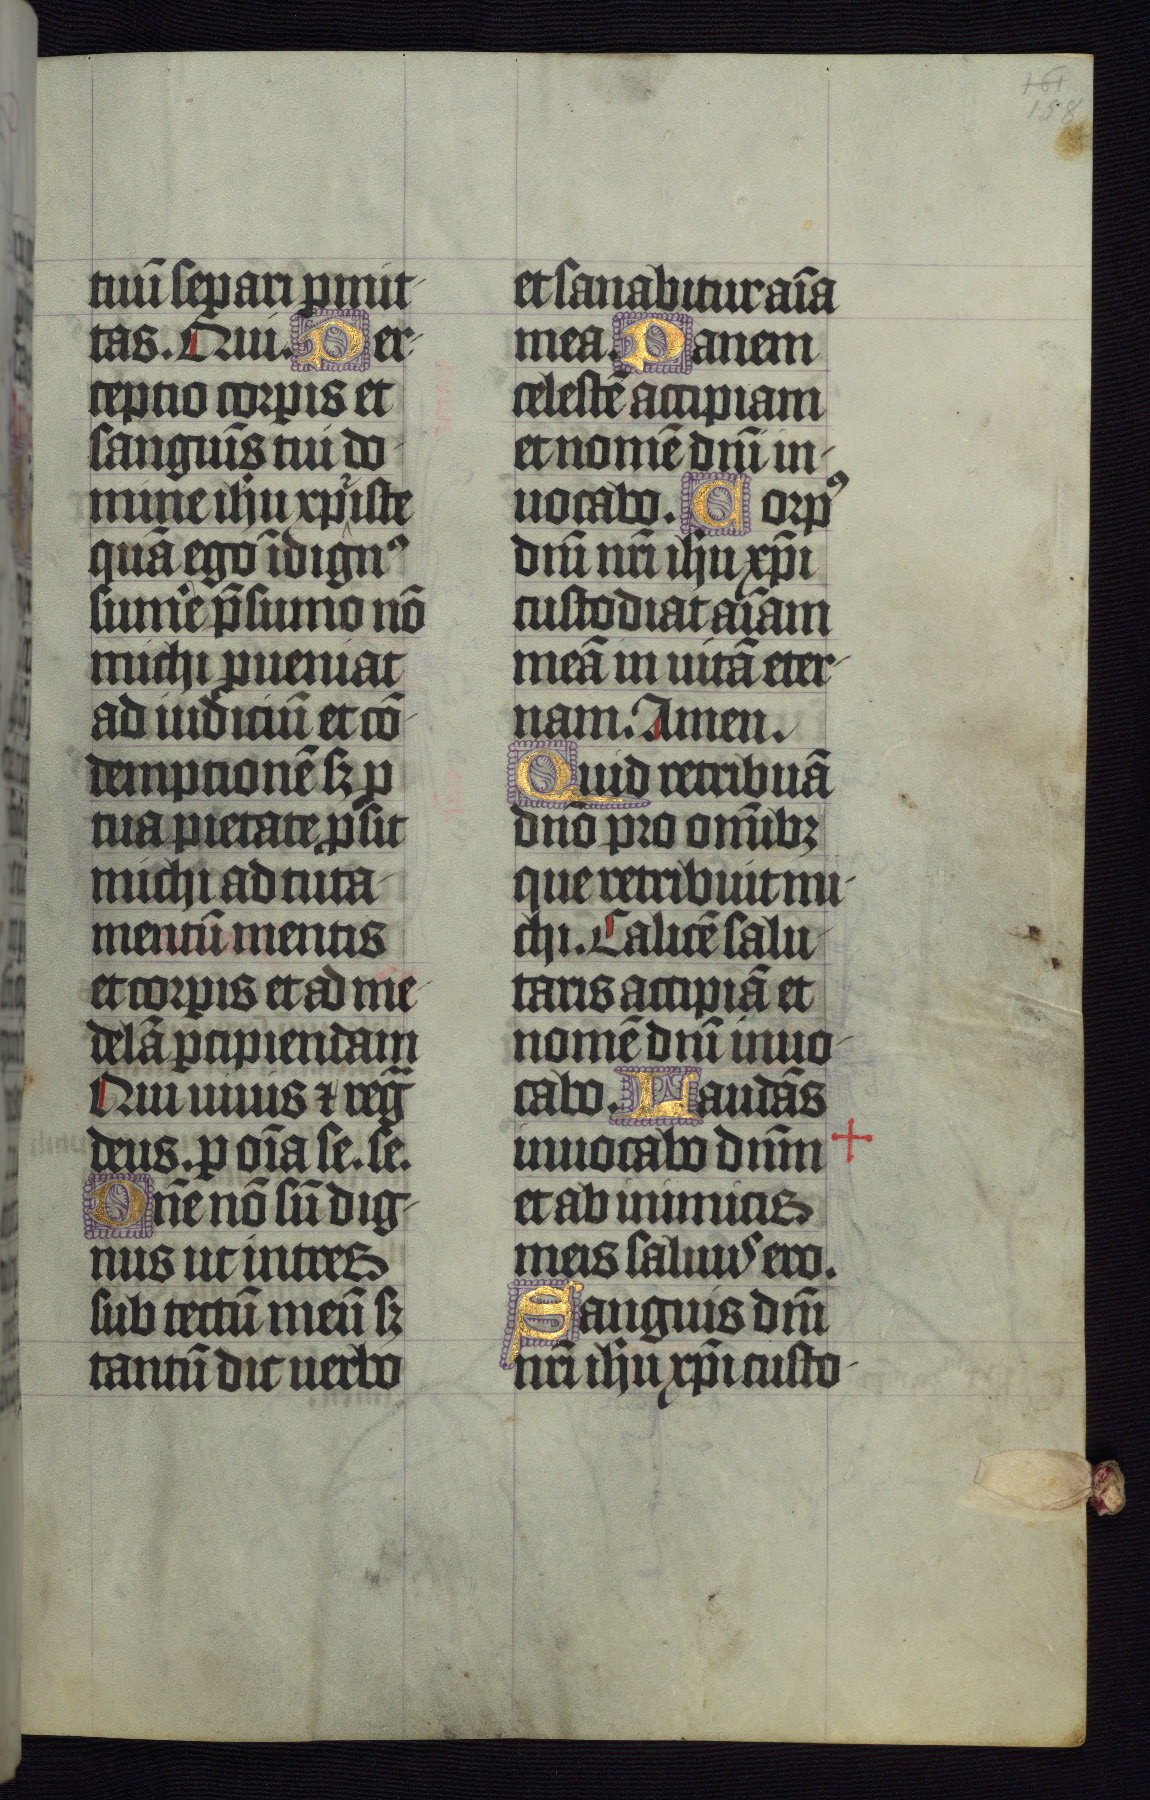 161
158
tuū separi ꝑmit-
tas. Qui. Per-
ceptio corꝑis et
sanguīs tui do-
mine ihu xp̄i ste
quā ego īdignꝰ
sum'e p̄sumo nō
michi ꝓueniat
ad iudiciū et cō-
demptionē sꝫ ꝓ
tua pietate ꝓsit
michi ad tuta-
mentū mentis
et corꝑis et ad me-
delā ꝑcipiendam
Qui uiuis ⁊ reḡ
deus. ꝑ oīa se. se.
Dn̄e nō sū dig-
nus ut intres
sub tectū meū sꝫ
tantū dic uerbo
et sanabitur aīa
mea. Panem
celestē accipiam
et nomē dn̄i in-
uocabo. Corpꝰ
dn̄i nr̄i ihu xp̄i
custodiat aīam
meā in uitā eter-
nam. Amen.
Quid retribuā
dn̄o pro om̄ibꝫ
que retribuit mi-
chi. Calicē salu-
taris accipiā et
nomē dn̄i inuo-
cabo. Laudās
inuocabo dn̄m +
et ab inimicis
meis saluus ero.
Sanguis dn̄i
nr̄i ihu xp̄i custo-